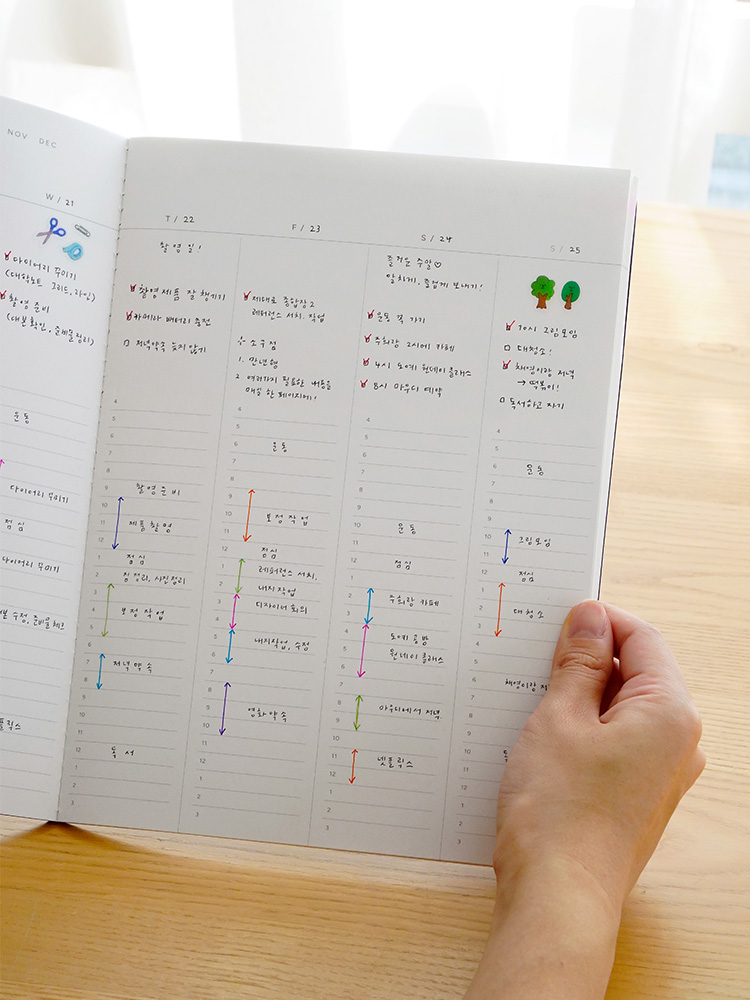 NOV DEC
W / 21
다이어리 꾸미기
(대학노트, 그리드, 라인)
촬영 준비
운동
다이어리 꾸미기
점심
다이어리 꾸미기
T / 22
촬영일!
촬영제품 잘 챙기기
카메라 배터리 충전
저녁약속 늦지 않기
4
5
6
7
8
9 촬영준비
10
11 제품촬영
12
1 점심
2 짐정리, 사진정리
3
4 보정 작업
5
6
7 저녁약속
8
9
10
11
12 독서
1
2
3
F / 23
레퍼런스 서치, 작업
1. 만년형
2. 여러가지 필요한 내용을
매일 한 페이지에!
4
5
6 운동
7
8
9
10 보정작업
11
12 점심
1 레퍼런스 서치,
2 내지작업
3 디자이너 회의
4
5 내지작업, 수정
6
7
8
9 영화약속
10
11
12
1
2
3
S / 24
즐거운 주말♡
알차게, 즐겁게 보내기!
운동 꼭 가기
주희랑 2시에 카페
4시 도예 원데이클래스
8시 마우디 예약
4
5
6
7
8
9
10 운동
11
12 점심
1
2
3 주희랑 카페
4
5 도예공방
6 원데이클래스
7
8
9 마우디에서 저녁
10
11 넷플릭스
12
1
2
3
S / 25
10시 그림모임
대청소!
채영이랑 저녁
→ 떡볶이!
독서하고 자기
4
5
6 운동
7
8
9
10
11 그림모임
12 점심
1
2 대청소
3
4
5
6 채영이랑
7
8
9
10
11
12
1
2
3